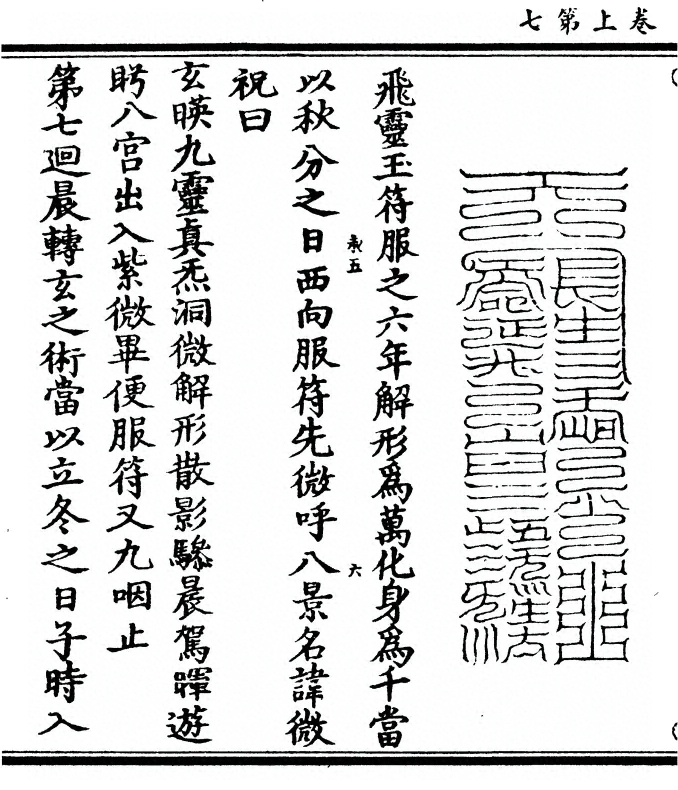 卷上第七
飛靈玉符服之六年解形爲萬化身爲千當
以秋分之日西向服符先微呼八景名諱微
承五
六
祝曰
玄暎九靈真炁洞微解形散影驂晨駕暉遊
眄八宮出入紫微畢便服符又九咽止
第七迴晨轉玄之術當以立冬之日子時入